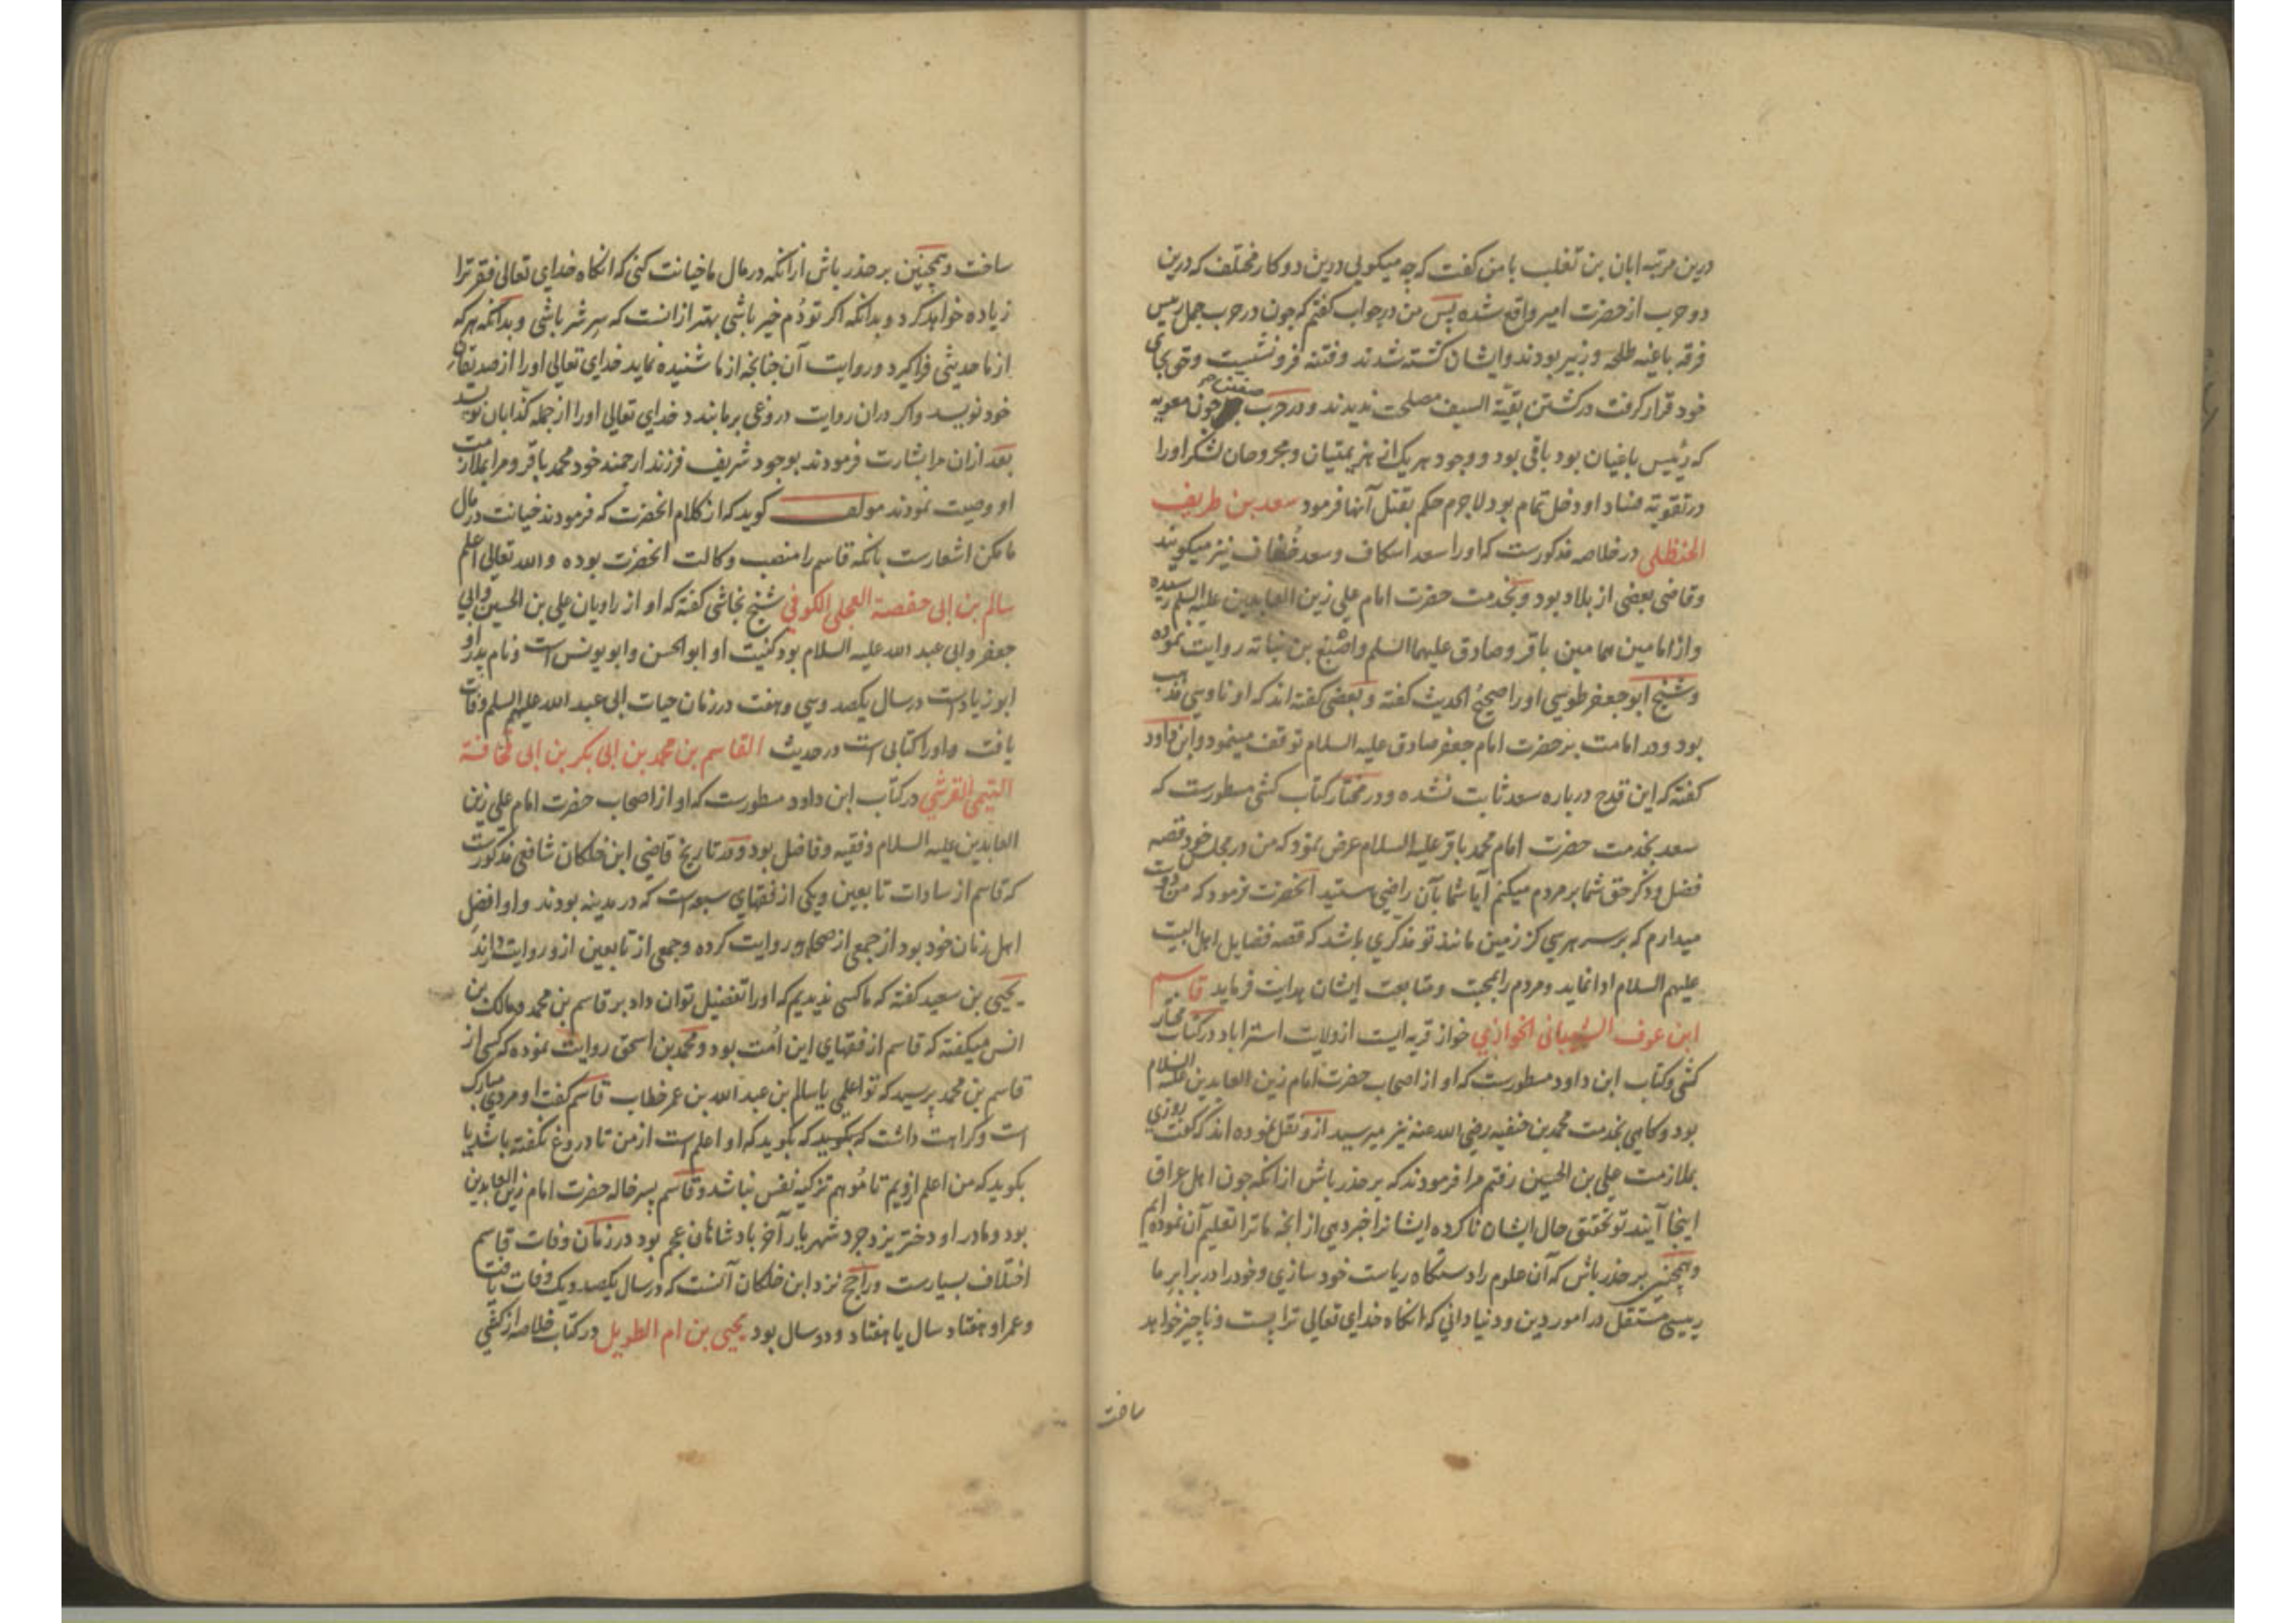 درین مرتبه ابان بن تغلب با من کفت که چه میکویی درین دو کار مختلف که درین
دو حرب از حضرت امیر واقع شده پس من در جواب کفتم که چون در حرب جمل رییس
فرقه باغیه طلحه و زبیر بودند و ایشان کشته شدند و فتنه فرو نشست و حق بجای
خود قرار کرفت در کشتن بقیّة السیف مصلحت ندیدند و در حرب صفین چون معویه
که رئیس باغیان بود باقی بود و وجود هر یک از هزیمتیان و مجروحان لشکر او را
در تقویة فساد او دخل تمام بود لاجرم حکم بقتل آنها فرمود سعد بن طریف
الحنظلی در خلاصه مذکورست که او را سعد اسکاف و سعد خفاف نیز میکویند
و قاضی بعضی از بلاد بود و بخدمت حضرت امام علی زین العابدین علیه السلم رسیده
و از امامین همامین باقر و صادق علیهما السلم و اصبغ بن نباته روایت نموده
و شیخ ابو جعفر طوسی او را صحیح الحدیث کفته و بعضی کفته اند که او ناوسی مذهب
بود و در امامت بر حضرت امام جعفر صادق علیه السلام توقف مینمود و ابن داود
کفته که این قدح درباره سعد ثابت نشده و در مختار کتاب کشی مسطورست که
سعد بخدمت حضرت امام محمد باقر علیه السلام عرض نمود که من در مجلس خود قصه
فضل و ذکر حق شما بر مردم میکنم آیا شما بآن راضی هستید آنحضرت فرمود که من دوست
میدارم که بر سر هر سی کز زمین مانند تو مذکری باشد که قصه فضایل اهل البیت
علیهم السلام ادا نماید و مردم را بمحبت و متابعت ایشان هدایت فرماید قاسم
ابن عوف الشیبانی الخوازی خواز قریه ایست از ولایت استراباد در کتاب مختار
کشی و کتاب ابن داود مسطورست که او از اصحاب حضرت امام زین العابدین علیه السلام
بود و کاهی بخدمت محمد بن حنفیه رضی الله عنه نیز میرسید از و نقل نموده اند که کفت روزی
بملازمت علی بن الحسین رفتم مرا فرمودند که بر حذر باش از انکه چون اهل عراق
اینجا آیند تو تحقیق حال ایشان نا کرده ایشانرا خبر دهی از انچه ما ترا تعلیم آن نموده ایم
و همچنین بر حذر باش که آن علوم را دستکاه ریاست خود سازی و خود را در برابر ما
رییسی مستقل در امور دین و دنیا دانی که انکاه خدای تعالی ترا پست و ناچیز خواهد
ساخت
ساخت و همچنین بر حذر باش از انکه در مال ما خیانت کنی که انکاه خدای تعالی فقر ترا
زیاده خواهد کرد و بدانکه اکر تو دُم خیر باشی بهتر از انست که سر شر باشی و بدانکه هر که
از ما حدیثی فرا کیرد و روایت آن چنانچه از ما شنیده نماید خدای تعالی او را از صدیقان
خود نویسد و اکر در ان روایت دروغی بر ما بندد خدای تعالی او را از جمله کذابان نویسد
بعد از ان مرا بشارت فرمودند بوجود شریف فرزند ارجمند خود محمد باقر و مرا بملازمت
او وصیت نمودند مولف کوید که از کلام انحضرت که فرمودند خیانت در مال
ما مکن اشعارست بانکه قاسم را منصب وکالت انحضرت بوده و الله تعالی اعلم
سالم بن ابی حفصة العجلی الکوفی شیخ نجاشی کفته که او از راویان علی بن الحسین و ابی
جعفر و ابی عبد الله علیه السلام بود کنیت او ابو الحسن و ابو یونس است و نام پدر او
ابو زیادست در سال یکصد و سی و هفت در زمان حیات ابی عبد الله علیهم السلم وفات
یافت و او را کتابی است در حدیث القاسم بن محمد بن ابی بکر بن ابی قحافة
التیمی القرشی در کتاب ابن داود مسطورست که او از اصحاب حضرت امام علی زین
العابدین علیه السلام و فقیه و فاضل بود و در تاریخ قاضی ابن خلکان شافعی مذکورست
که قاسم از سادات تابعین و یکی از فقهای سبعه است که در مدینه بودند و او افضل
اهل زمان خود بود از جمعی از صحابه روایت کرده و جمعی از تابعین ازو روایت دارند
یحیی بن سعید کفته که ما کسی ندیدیم که او را تفضیل توان داد بر قاسم بن محمد و مالک بن
انس میکفته که قاسم از فقهای این اُمت بود و محمد بن اسحق روایت نموده که کسی از
قاسم بن محمد پرسید که تو اعلمی یا سالم بن عبد الله بن عمر خطاب قاسم کفت او مردی مبارک
است و کراهت داشت که بکوید که بکوید که او اعلم است از من تا دروغ نکفته باشد یا
بکوید که من اعلم ازویم تا مُوهم تزکیه نفس نباشد و قاسم پسر خاله حضرت امام زین العابدین
بود و مادر او دختر یزدجرد شهریار آخر بادشاهان عجم بود در زمان وفات قاسم
اختلاف بسیارست و راجح نزد ابن خلکان آنست که در سال یکصد و یک وفات یافت
و عمر او هفتاد سال یا هفتاد و دو سال بود یحیی بن ام الطویل در کتاب خلاصه از کشی